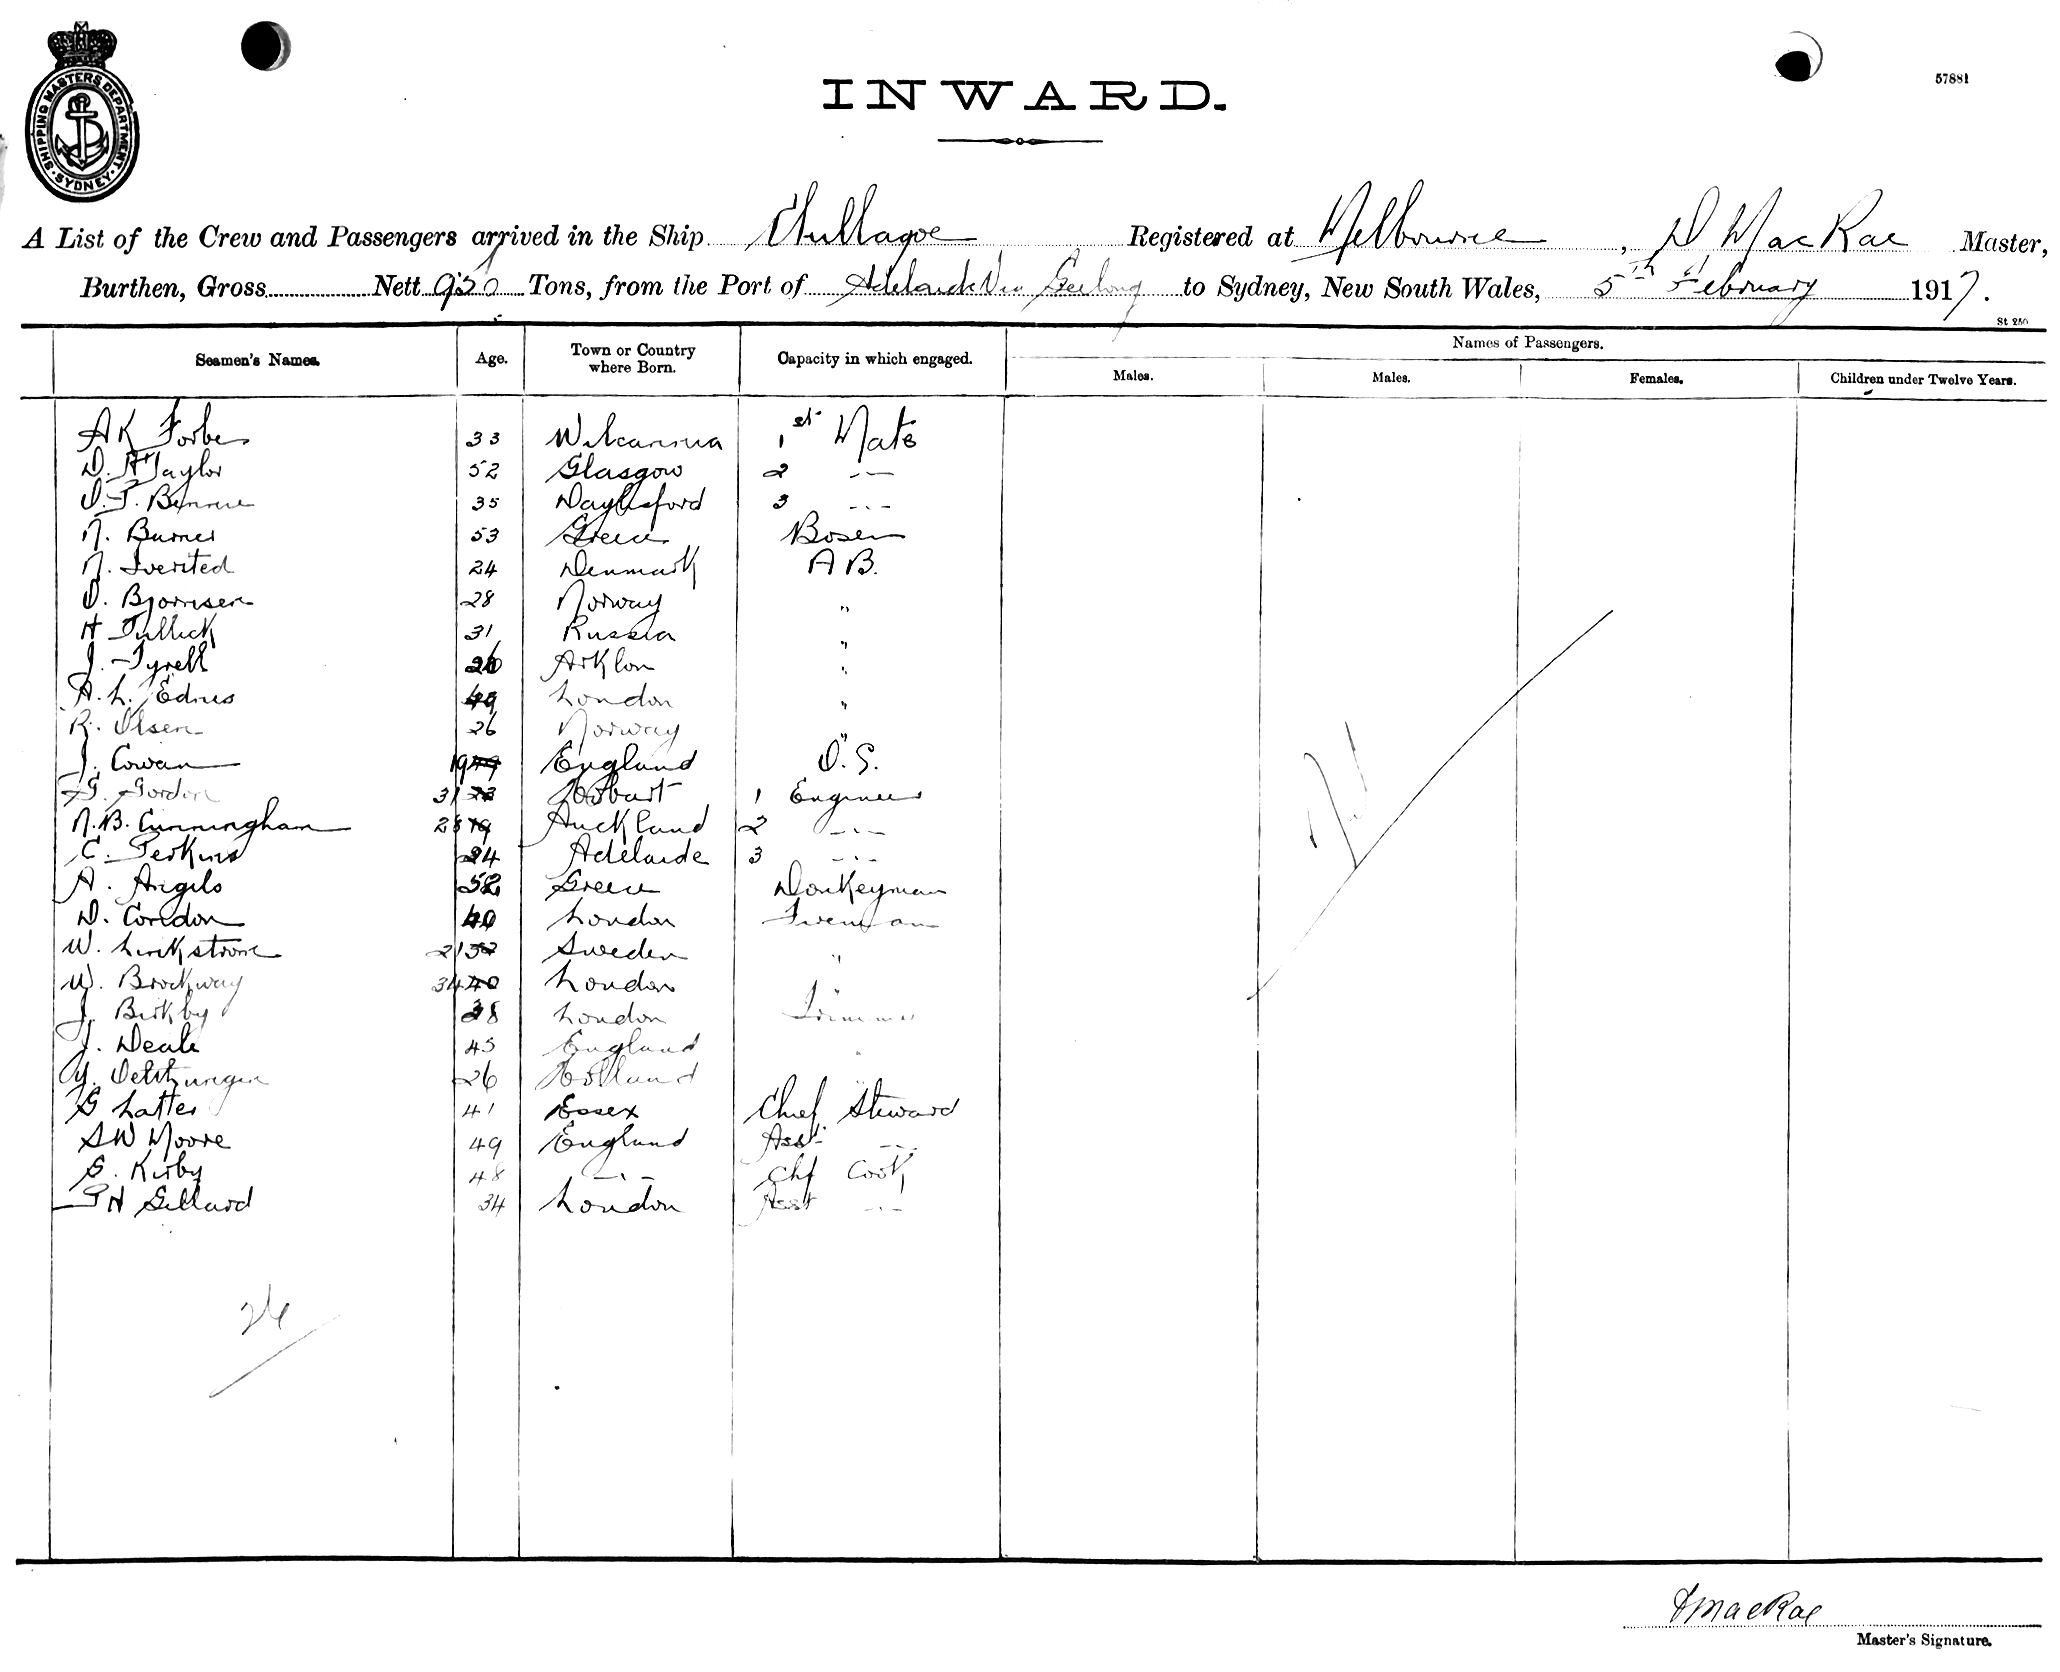 SHIPPING MASTERS DEPARTMENT · SYDNEY ·
57881
INWARD.
A List of the Crew and Passengers arrived in the Ship Chillagoe Registered at Melbourne, D MacRae Master,
Burthen, Gross Nett Tons, from the Port of Adelaide Via Geelong to Sydney, New South Wales, 5th February 1917.
St 250
Seamen's Names. Age. Town or Country where Born. Capacity in which engaged. Names of Passengers.
Males. Males. Females. Children under Twelve Years.
A K Forbes 33 Wilcannia 1st Mate
D. H Taylor 52 Glasgow 2 -.-
D. J. Bennie 35 Daylesford 3 -.-
N. Burnes 53 Greece Bosen
N. 24 Denmark A B.
O. Bjornsen 28 Norway "
H Tullick 31 Russia "
J. Tyrell 26 Arklon "
A. L. London "
R. Olsen 26 Norway "
J. Cowan 19 England O. S.
G. Gordon 31 Hobart 1 Engineer
N. B. Cunningham 28 Auckland 2 -.-
C. Perkins 24 Adelaide 3 -.-
A. Angelo 52 Greece Donkeyman
D. Coridon 40 London Fireman
W. Linkstrom 21 Sweden "
W. Brockway 34 London "
J. Birkby 38 London Trimmer
J. Deale 45 England "
26 Holland "
G Latter 41 Essex Chief Steward
S W Moore 49 England Asst -.-
S. Kirby 48 -.- Chf Cook
G H Gillard 34 London Asst -.-
Nil
26
D MacRae
Master's Signature.